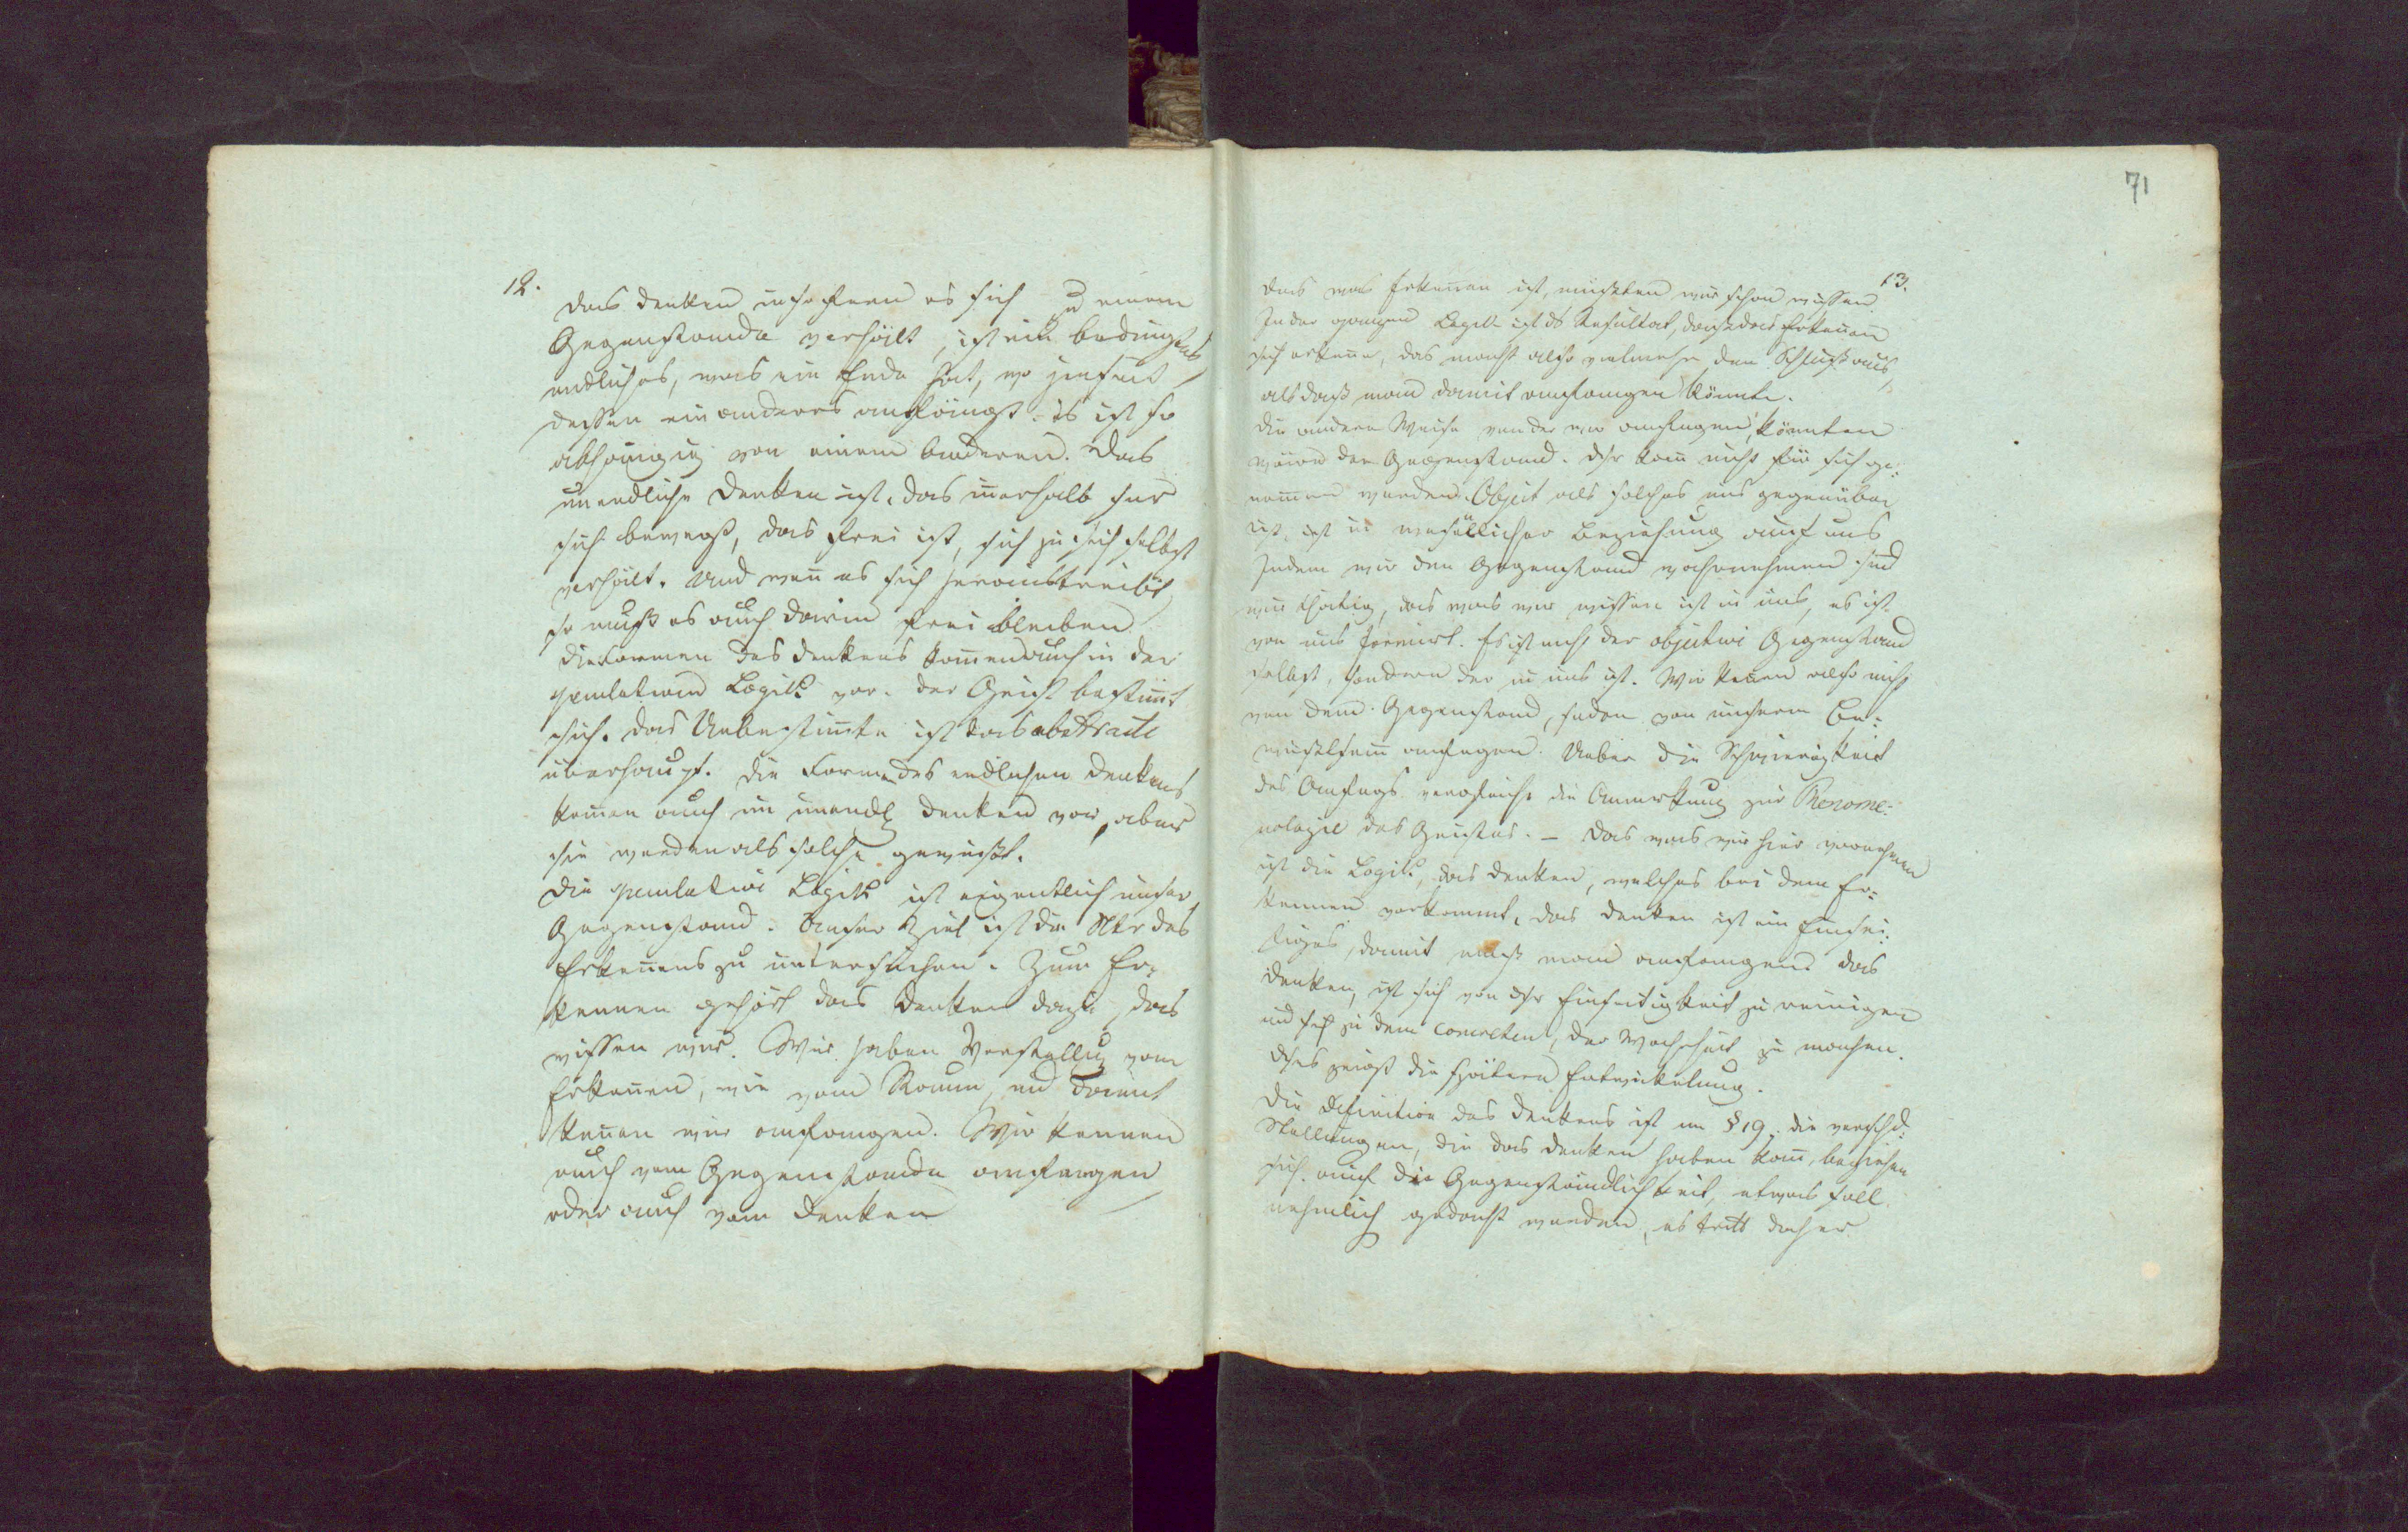 12.
Das Denken insofern es sich zu einem
Gegenstande verhält, ist ein bedingtes
endliches, was ein Ende hat, wo jenseit
dessen ein anderes anfängt. Es ist so
abhängig von einem Anderen. Das
unendliche Denken ist, das inerhalb sei
sich bewegt, das frei ist, sich zu sich selbst
verhält. Und weñ es sich heraustreibt
so muß es auch darin frei bleiben
Die Formen des Denkens komen auch in der
speculativen Logik vor. Der Geist bestimt
sich. Das Unbestimte ist das abstracte
überhaupt. Die Formen des endlichen Denkens
komen auch im unendl Denken vor, aber
sie werden als solche gewußt.
Die speculative Logik ist eigentlich unser
Gegenstand. Unser Ziel ist die Natur des
Erkeñens zu untersuchen. Zum Er-
kennen gehört das Denken dazu, das
wissen wir. Wir haben Vorstellug vom
Erkeñen, wie vom Raum, und damit
köñen wir anfangen. Wir können
auch vom Gegenstande anfangen
oder auch vom Denken
71
13.
Das was Erkeñen ist, müßten wir schon wissen.
In der ganzen Logik ist ds Resultat, daß das Erkeñen
sich erkeñe, das macht also vielmehr den Schluß aus,
als daß man damit anfangen könnte.
Die andere Weise von der wir anfangen, könnten
wäre der Gegenstand. Dsr kañ nicht für sich ge-
nomen werden. Object als solches uns gegenüber
ist, ist in wesentlicher Beziehung auf uns
Indem wir den Gegenstand wahrnehmen sind
wir thätig, das was wir wissen ist in uns, es ist
von uns formirt. Es ist nicht der objective Gegenstand
selbst, sondern der in uns ist. Wir köñen also nicht
von dem Gegenstand, sodern von unserem Be-
wußtsein anfagen. Ueber die Schwierigkeit
des Anfags vergleiche die Anmerkung zur Phenome-
nologie des Geistes. – Das was wir hier vornehmen
ist die Logik, das Denken, welches bei dem Er-
kennen vorkommt. Das Denken ist ein Einsei-
tiges, damit muß man anfangen. Das
Denken, ist sich von dsr Einseitigkeit zu reinigen
und sich zu dem concreten, der Wahrheit zu machen.
Dses zeigt die spätere Entwickelung.
Die Definition des Denkens ist im § 19. Die verschd.
Stellungen, die das Denken haben kañ, beziehen
sich auf die Gegenständlichkeit, etwas soll
nehmlich gedacht werden, es tritt daher